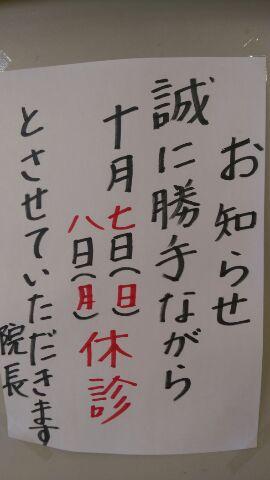 お知らせ
誠に勝手ながら
十月七日(日)
八日(月)休診
とさせていただきます
院長